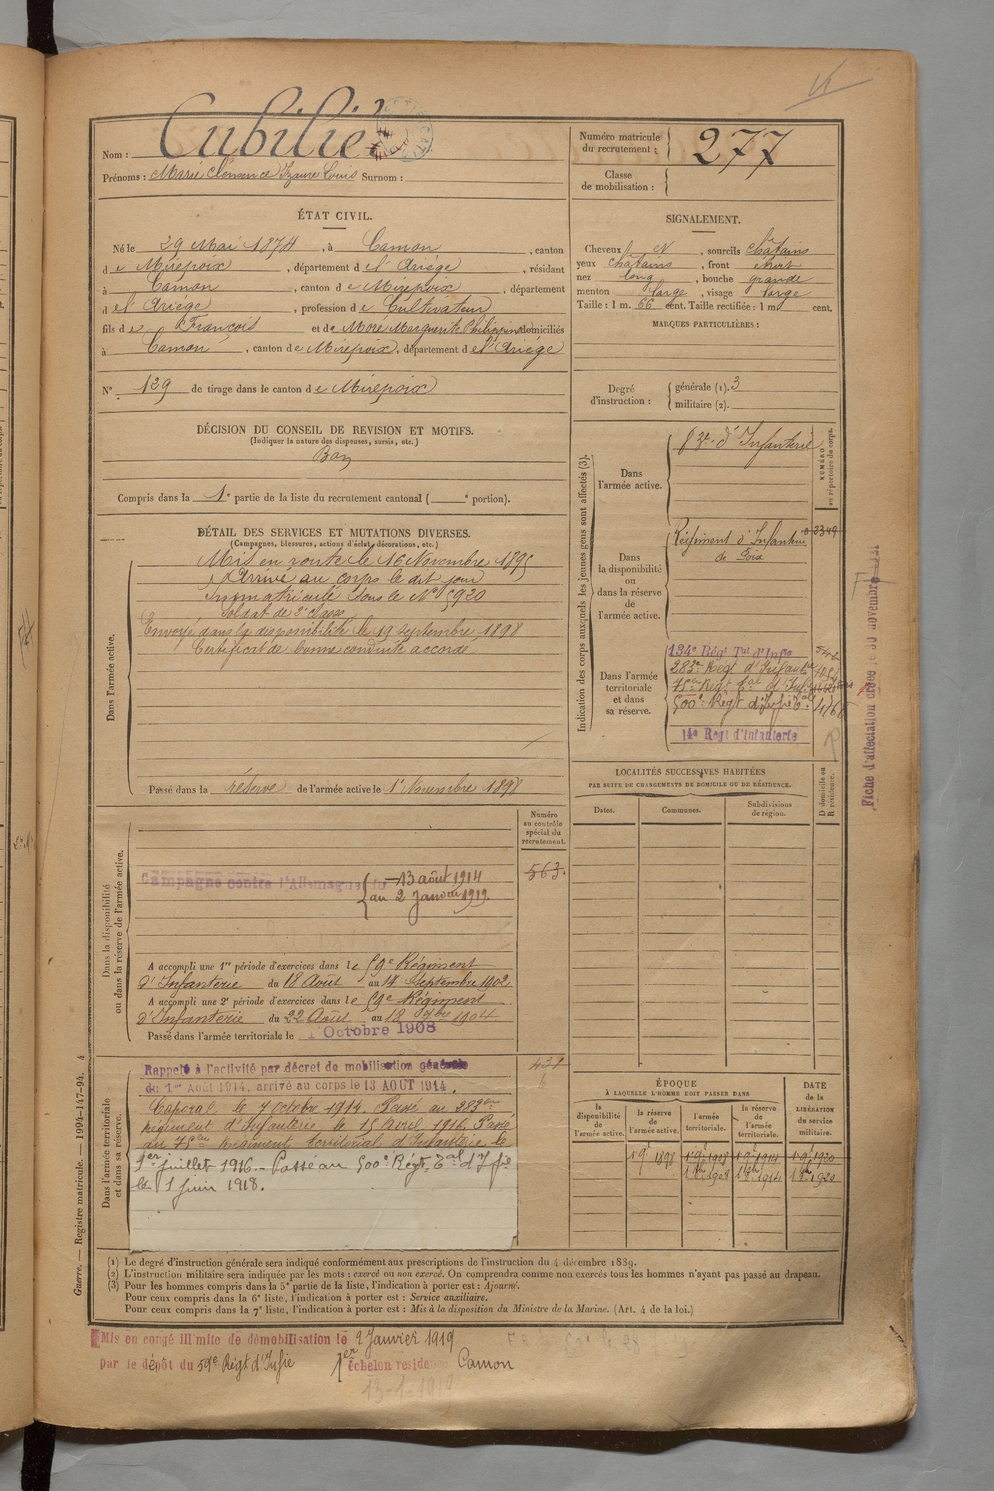 Nom : Cubilié
Prénoms : Marie Clémence Izaure Louis Surnom :
Numéro matricule du recrutement : 277
Classe de mobilisation :
ÉTAT CIVIL.
Né le 29 Mai 1874, à Camon, canton
de Mirepoix, département de l'Ariége, résidant
à Camon, canton de Mirepoix, département
de l'Ariége, profession de Cultivateur
fils de François et de More Marguerite Philippine domiciliés
à Camon, canton de Mirepoix, département de l'Ariége
N° 129 de tirage dans le canton de Mirepoix
SIGNALEMENT.
Cheveux N, sourcils châtains
yeux châtains, front
nez long, bouche grande
menton large, visage large
Taille : 1 m. 66 cent. Taille rectifiée : 1 m. cent.
MARQUES PARTICULIÈRES :
Degré d'instruction : générale (1). 3
militaire (2).
DÉCISION DU CONSEIL DE REVISION ET MOTIFS.
(Indiquer la nature des dispenses, sursis, etc.)
Bon
Compris dans la 1e partie de la liste du recrutement cantonal ( e portion).
DÉTAIL DES SERVICES ET MUTATIONS DIVERSES.
(Campagnes, blessures, actions d'éclat, décorations, etc.)
Dans l'armée active.
Mis en route le 16 Novembre 1895
Arrivé au corps le dit jour
Immatriculé sous le N° 5920
Soldat de 2e classe
Envoyé dans la disponibilité le 19 septembre 1898
Certificat de bonne conduite accordé
Passé dans la réserve de l'armée active le 1er Novembre 1898
Indication des corps auxquels les jeunes gens sont affectés (3).
NUMÉRO au répertoire du corps.
Dans l'armée active.
83e d'Infanterie
Dans la disponibilité ou dans la réserve de l'armée active.
Régiment d'Infanterie 3349
de Foix
Dans l'armée territoriale et dans sa réserve.
134e Régt Tal d'Infie
283e Régt d'Infanterie
75e Régt Tal d'Infie
500e Régt d'Infie Tale
14e Regt d'Infanterie
Fiche d'affectation créée le 30 novembre
LOCALITÉS SUCCESSIVES HABITÉES
PAR SUITE DE CHANGEMENTS DE DOMICILE OU DE RÉSIDENCE.
Dates. Communes. Subdivisions de région. D domicile ou R résidence.
Numéro au contrôle spécial du recrutement.
563
Dans la disponibilité ou dans la réserve de l'armée active.
Campagne contre l'Allemagne du 13 août 1914
au 2 Janvier 1919.
A accompli une 1re période d'exercices dans le 59e Régiment
d'Infanterie du 18 Août au 14 Septembre 1902
A accompli une 2e période d'exercices dans le 59e Régiment
d'Infanterie du 22 Août au 18 7bre 1904
Passé dans l'armée territoriale le 1 Octobre 1908
Dans l'armée territoriale et dans sa réserve.
Rappelé à l'activité par décret de mobilisation générale
du 1er Août 1914. arrivé au corps le 13 AOUT 1914.
Caporal le 7 octobre 1914. Passé au 283eme
régiment d'Infanterie le 15 Avril 1916. Passé
au 75eme Régiment territorial d'Infanterie le
1er juillet 1916. - Passé au 500e Régt Tal d'Ifie
le 1 juin 1918.
ÉPOQUE
À LAQUELLE L'HOMME DOIT PASSER DANS
la disponibilité de l'armée active. la réserve de l'armée active. l'armée territoriale. la réserve de l'armée territoriale.
DATE de la LIBÉRATION du service militaire.
1 9e 1898 1 9e 1908 1 9e 1914 1 9e 1920
1 8bre 1908 1 8bre 1914 1 8bre 1920
(1) Le degré d'instruction générale sera indiqué conformément aux prescriptions de l'instruction du 4 décembre 1889.
(2) L'instruction militaire sera indiquée par les mots : exercé ou non exercé. On comprendra comme non exercés tous les hommes n'ayant pas passé au drapeau.
(3) Pour les hommes compris dans la 5e partie de la liste, l'indication à porter est : Ajourné.
Pour ceux compris dans la 6e liste, l'indication à porter est : Service auxiliaire.
Pour ceux compris dans la 7e liste, l'indication à porter est : Mis à la disposition du Ministre de la Marine. (Art. 4 de la loi.)
Guerre. — Registre matricule. — 1994-147-94. 4
Mis en congé illimité de démobilisation le 2 Janvier 1919
par le dépôt du 59e Régt d'Infie 1er échelon residence Camon
13-1-1919